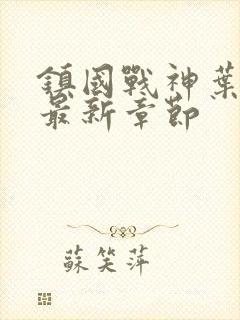 鎮國戰神葉
最新章節
蘇笑萍